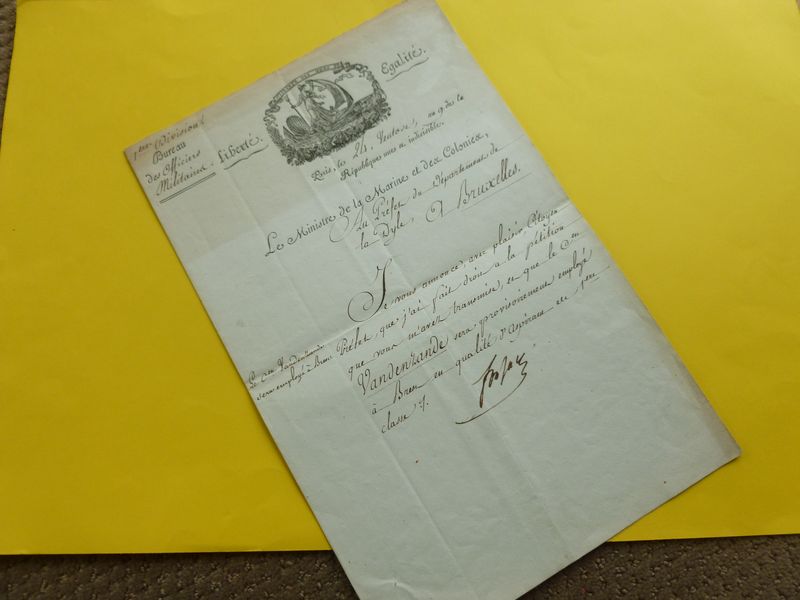 1ere Division
Bureau
des Officiers
Militaires.
Liberté.
Egalité.
Paris, le 24 Ventose, an 9 de la
République une et indivisible.
Le Ministre de la Marine et des Colonies,
Au Préfet du Département de
la Dyle, A Bruxelles.
Je vous annonce, avec plaisir Citoyen
Préfet que j'ai fait droit a la pétition
que vous m'avez transmise, et que le Cen
Vandenzande sera provisoirement employé
à Brest en qualité d'Aspirant de 1ere
classe.
Le Cen Vandenzande
sera employé à Brest